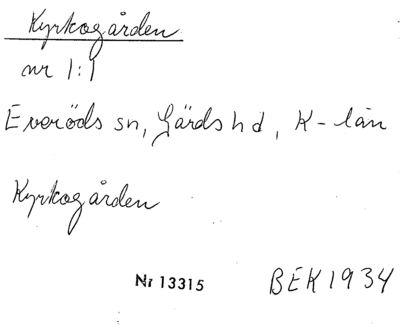 Kyrkogården
nr 1:1
Everöds sn, Gärds hd, K-län
Kyrkogården
Nr 13315 BEK 1934